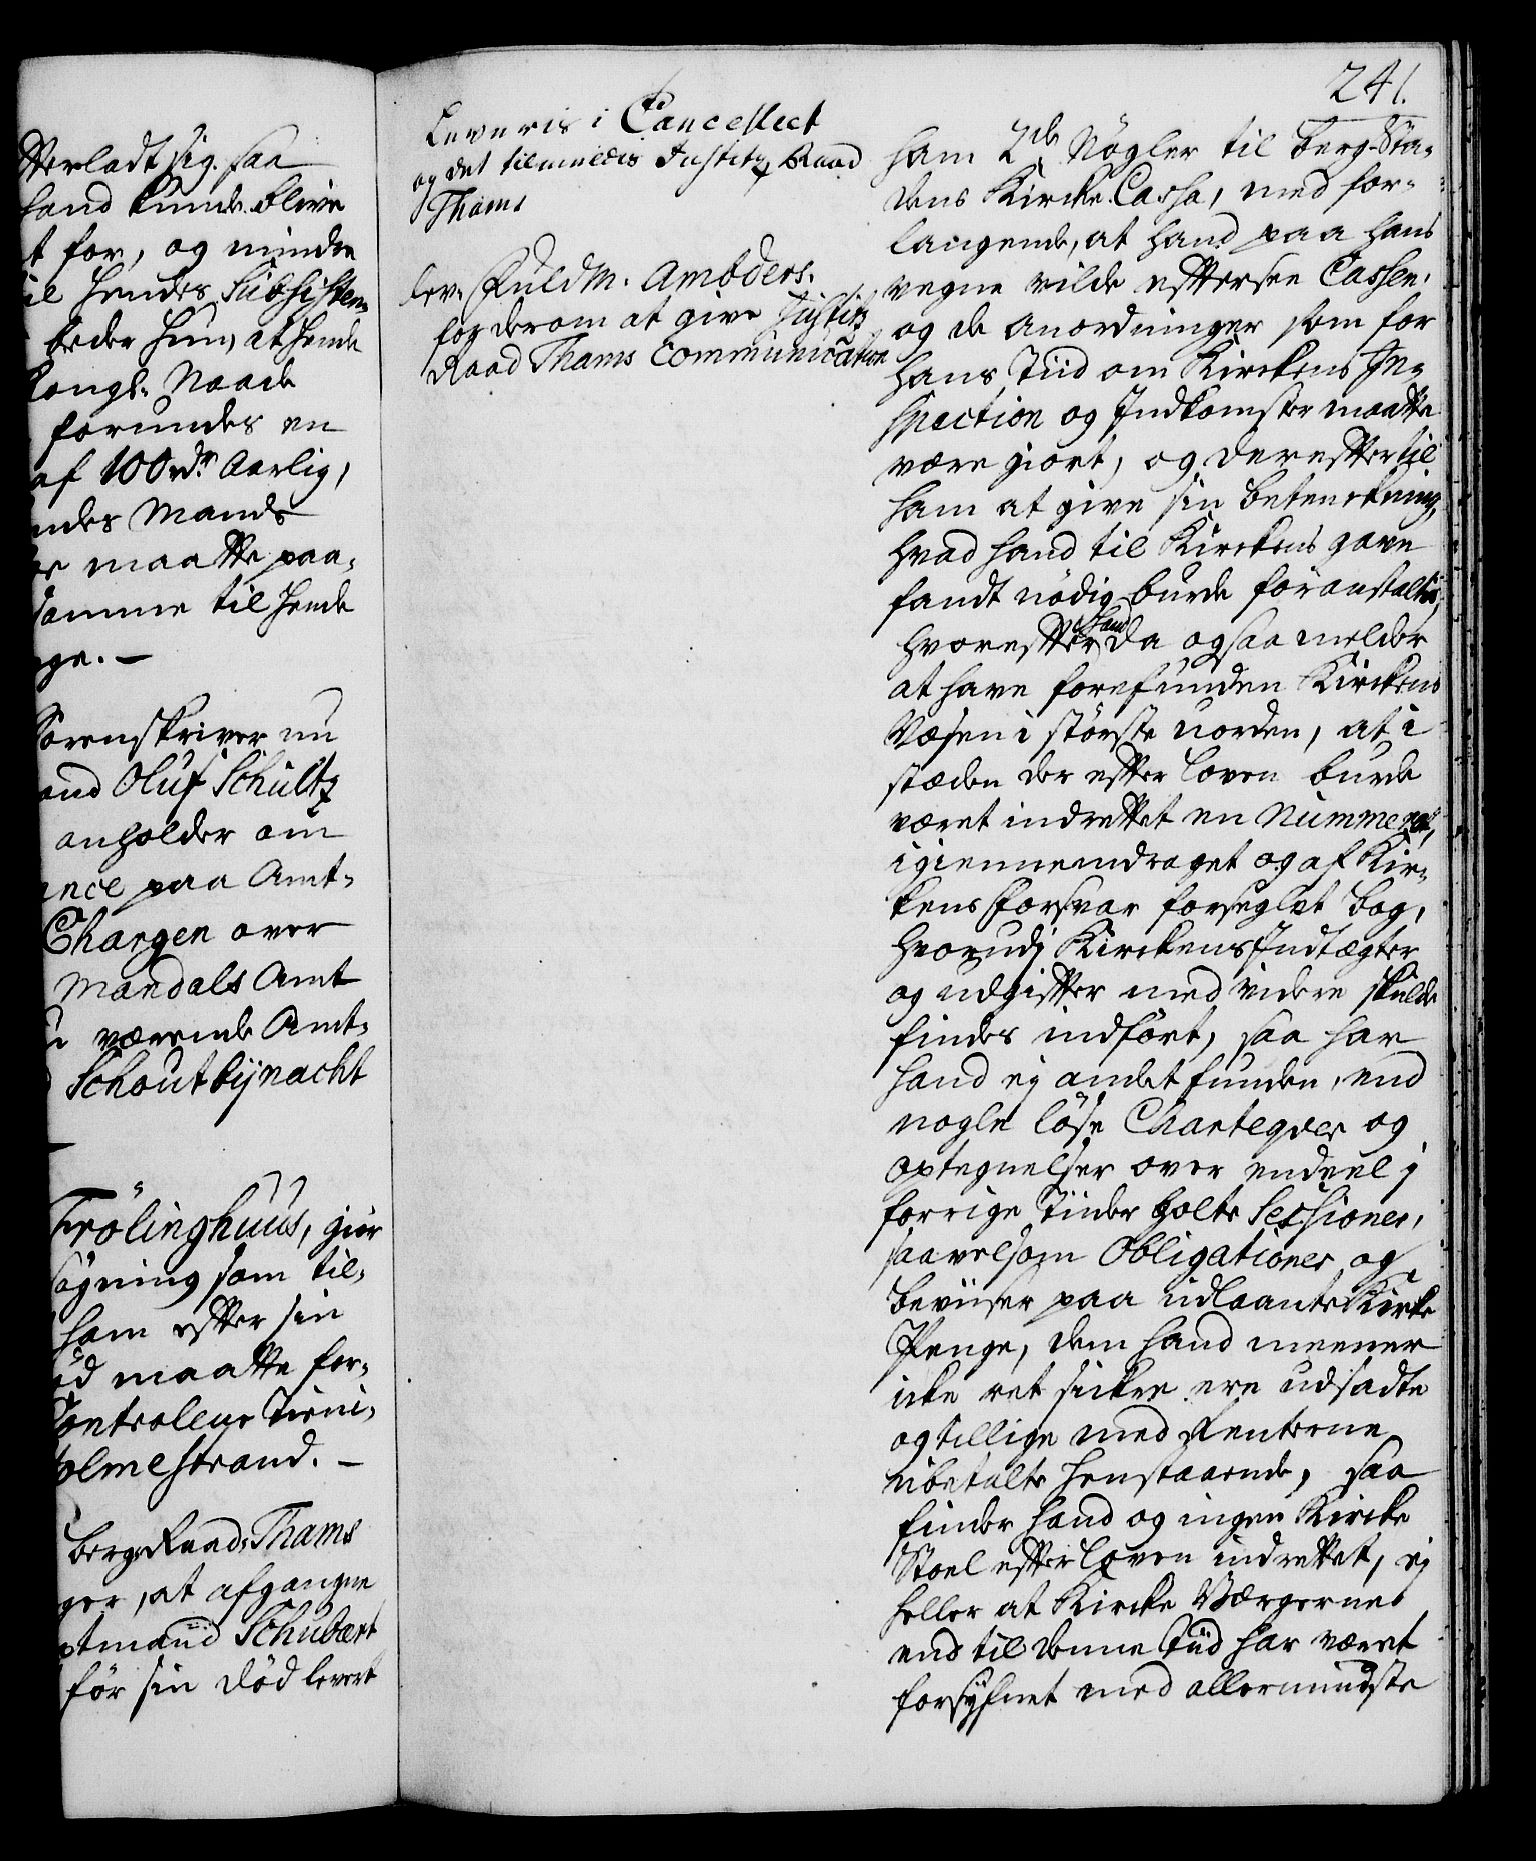 241.
tterladt sig. saa
hand kunde blive
t for, og mindre
il hendes Subsisten¬
beder hun, at hende
Kongl. Naade
forundes en
af 100 rdr. Aarlig,
ndes Mands
maatte paa¬
samme til hende
ge. —
Sorenskriver nu
and Oluf Schultz
anholder om
ance paa Amt¬
Chargen over
Mandals Amt
værende Amt¬
Schoutbÿnacht
Frölinghuus, giør
søgning som til¬
ham efter sin
maatte for¬
Controlleur Tieni¬
olmestrand. —
Berg-Raad Thams
ger, at afgangne
ptmand Schubært
før sin Död levert
Leveris i Cancelliet
og det tilmeldis Justitz Raad
Thams
lev. Fuldm. Ambders.
for derom at give Justitz
Raad Thams Communication
ham 2de Nögler til Berg-Sta¬
dens Kircke Cassa, med for¬
langende, at hand paa hans
vegne vilde eftersee Cassen,
og de anordninger som for
hans Tiid om Kirckens In¬
spection og Indkomster maatte
være giort, og derefter til
ham at give sin betenckning,
hvad hand til Kirckens gavn
fandt nödig burde foranstaltis,
hvorefter hand da ogsaa melder
at have forefunden Kirckens
Væsen i störste uorden, at i
stæden der efter Loven burde
været indrettet en Nummeret,
igiennemdraget og af Kir¬
kens forsvar forseglet bog,
hvorudj Kirckens Indtægter
og udgifter med videre skulde
findes indfört, saa har
hand ej andet funden, end
nogle löse Charteqver og
optegnelser over endeel j
forrige Tiider holte Sessioner,
saavelsom Obligationer og
beviiser paa udlaante Kirke
Penge, dem hand meener
icke ret sickre ere udsadte
og tillige med Renterne
ubetalte henstaaende, saa
finder hand og ingen Kircke
Stoel efter Loven indrettet, ej
heller at Kircke Værgerne
end til denne Tiid har været
forsÿnet med allermindste